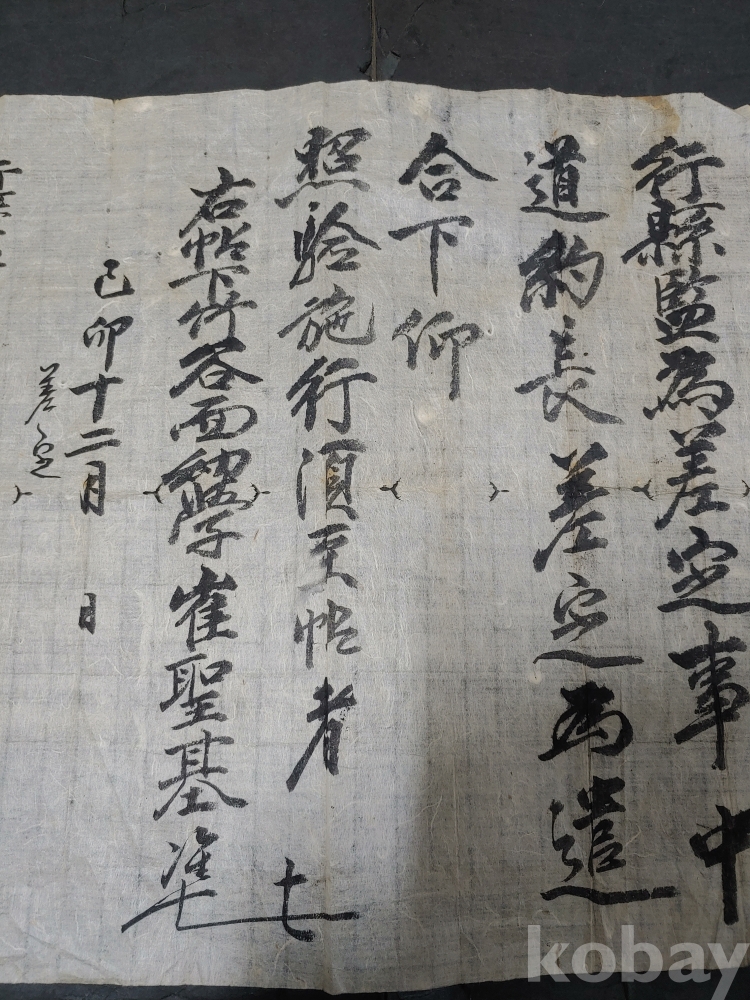 行縣監為差定事中
道約長差定為遣
合下仰
照驗施行須至帖者
右帖下 谷面 學崔聖基準
己卯十二月 日
差定
kobay